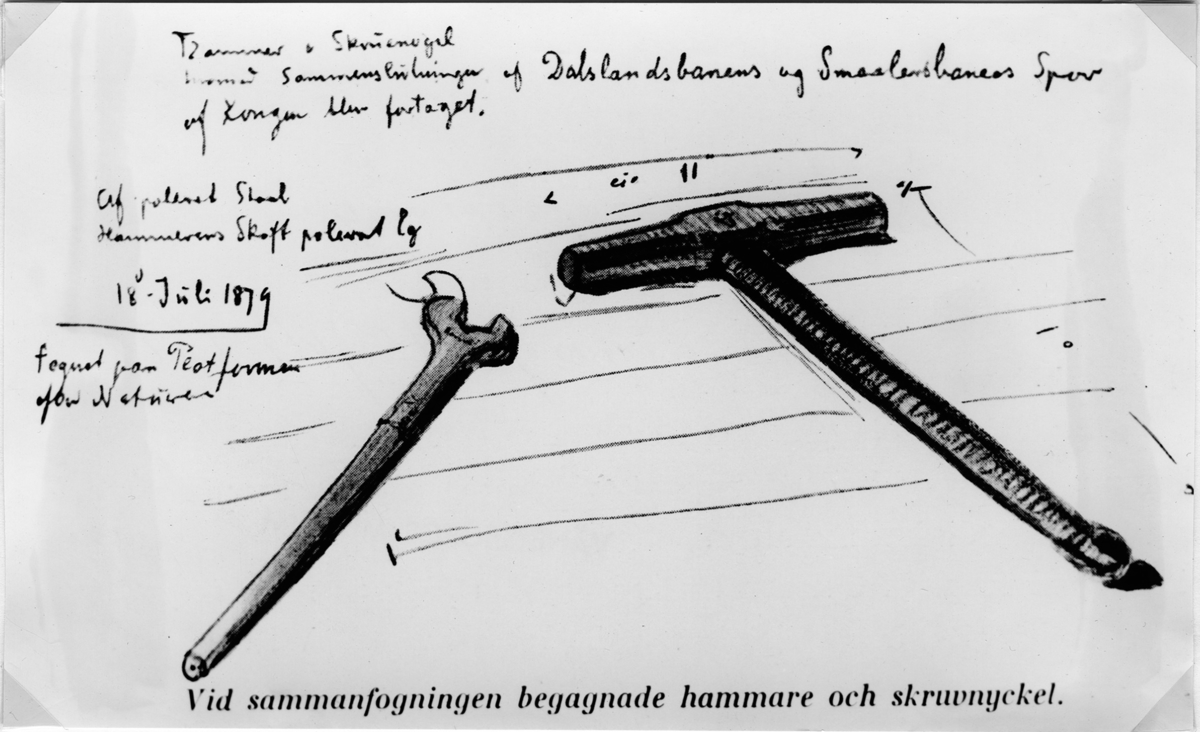 Hammer o Skruenøgel
hvormed Sammenslutningen af Dalslandsbanens og Smaalensbanens Spor
af Kongen blev fortaget.
Af poleret Staal
Hammerens Skaft poleret Eg
18 Juli 1879
Tegnet paa Platformen
efter Naturen
Vid sammanfogningen begagnade hammare och skruvnyckel.